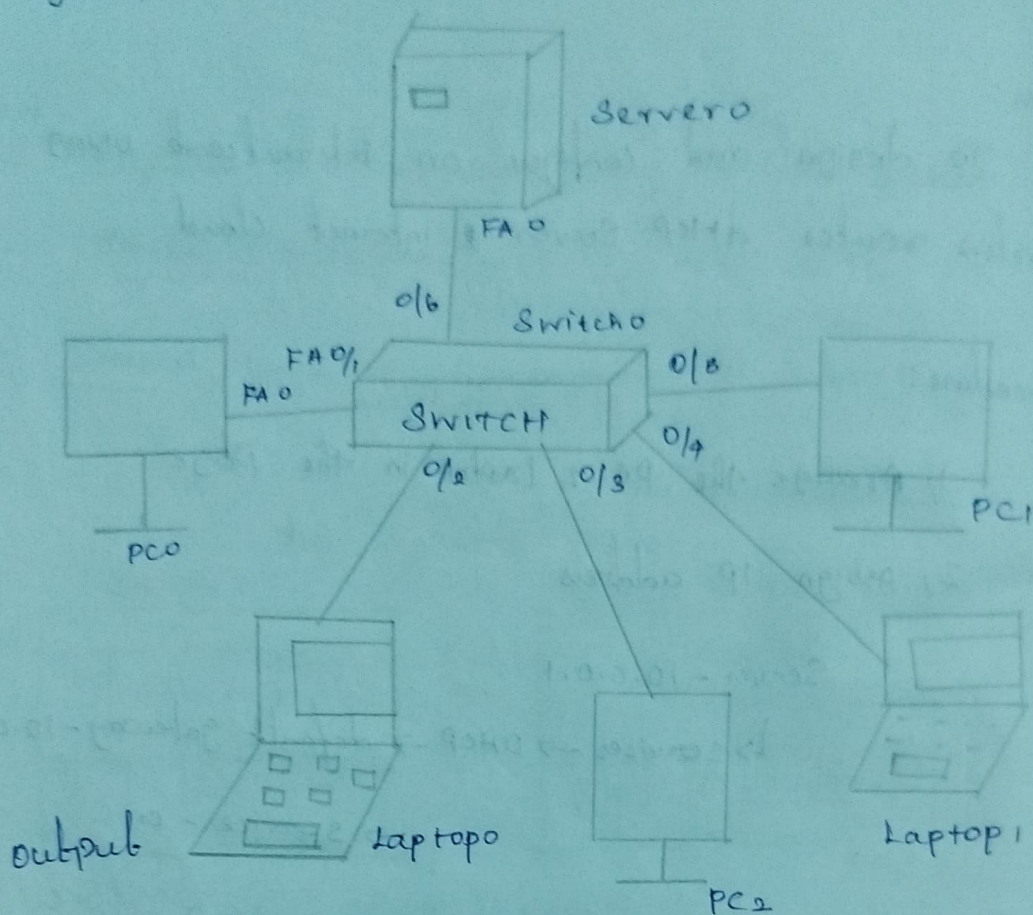 Server0
FA 0
0/6
Switch0
FA 0/1
FA 0
SWITCH
0/B
0/4
0/2
0/3
PC0
PC1
output
Laptop0
Laptop1
PC2